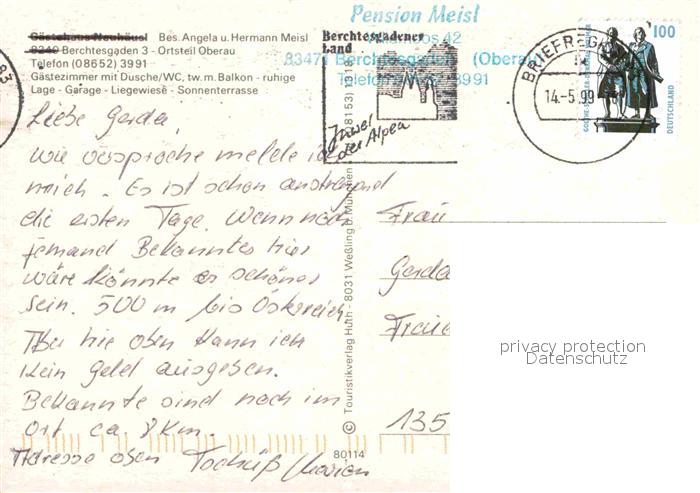 Gästehaus Neuhäusl Bes. Angela u. Hermann Meisl
8240 Berchtesgaden 3 - Ortsteil Oberau
Telefon (08652) 3991
Gästezimmer mit Dusche/WC, tw. m. Balkon - ruhige
Lage - Garage - Liegewiese - Sonnenterrasse
Pension Meisl
42
83471 Berchtesgaden (Oberau)
Telefon 3991
Berchtesgadener
Land
Juwel
der Alpen
BRIEFREG
14.-5.99
100
DEUTSCHLAND
Liebe Gerda,
wie versproche melde ich
mich. Es ist schon anstrengend
die ersten Tage. Wenn noch
jemand Bekanntes hier
wäre könnte es schöner
sein. 500 m bis Österreich
Aber hie oben kann ich
kein Geld ausgeben.
Bekannte sind noch im
Ort ca. 8 Km.
Adresse oben Tschüß Marion
© Touristikverlag Huth · 8031 Weßling b. München · (08153) 1318
80114
Frau
Gerda
135
privacy protection
Datenschutz